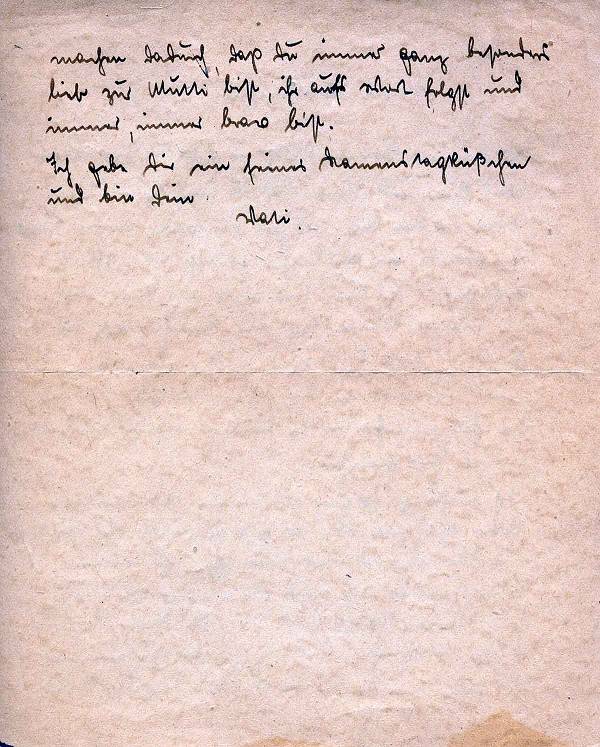 machen dadurch, daß du immer ganz besonders
lieb zur Mutti bist, ihr aufs Wort folgst und
immer, immer brav bist.
Ich gebe Dir ein feines Namenstagküßchen
und bin Dein
Vati.